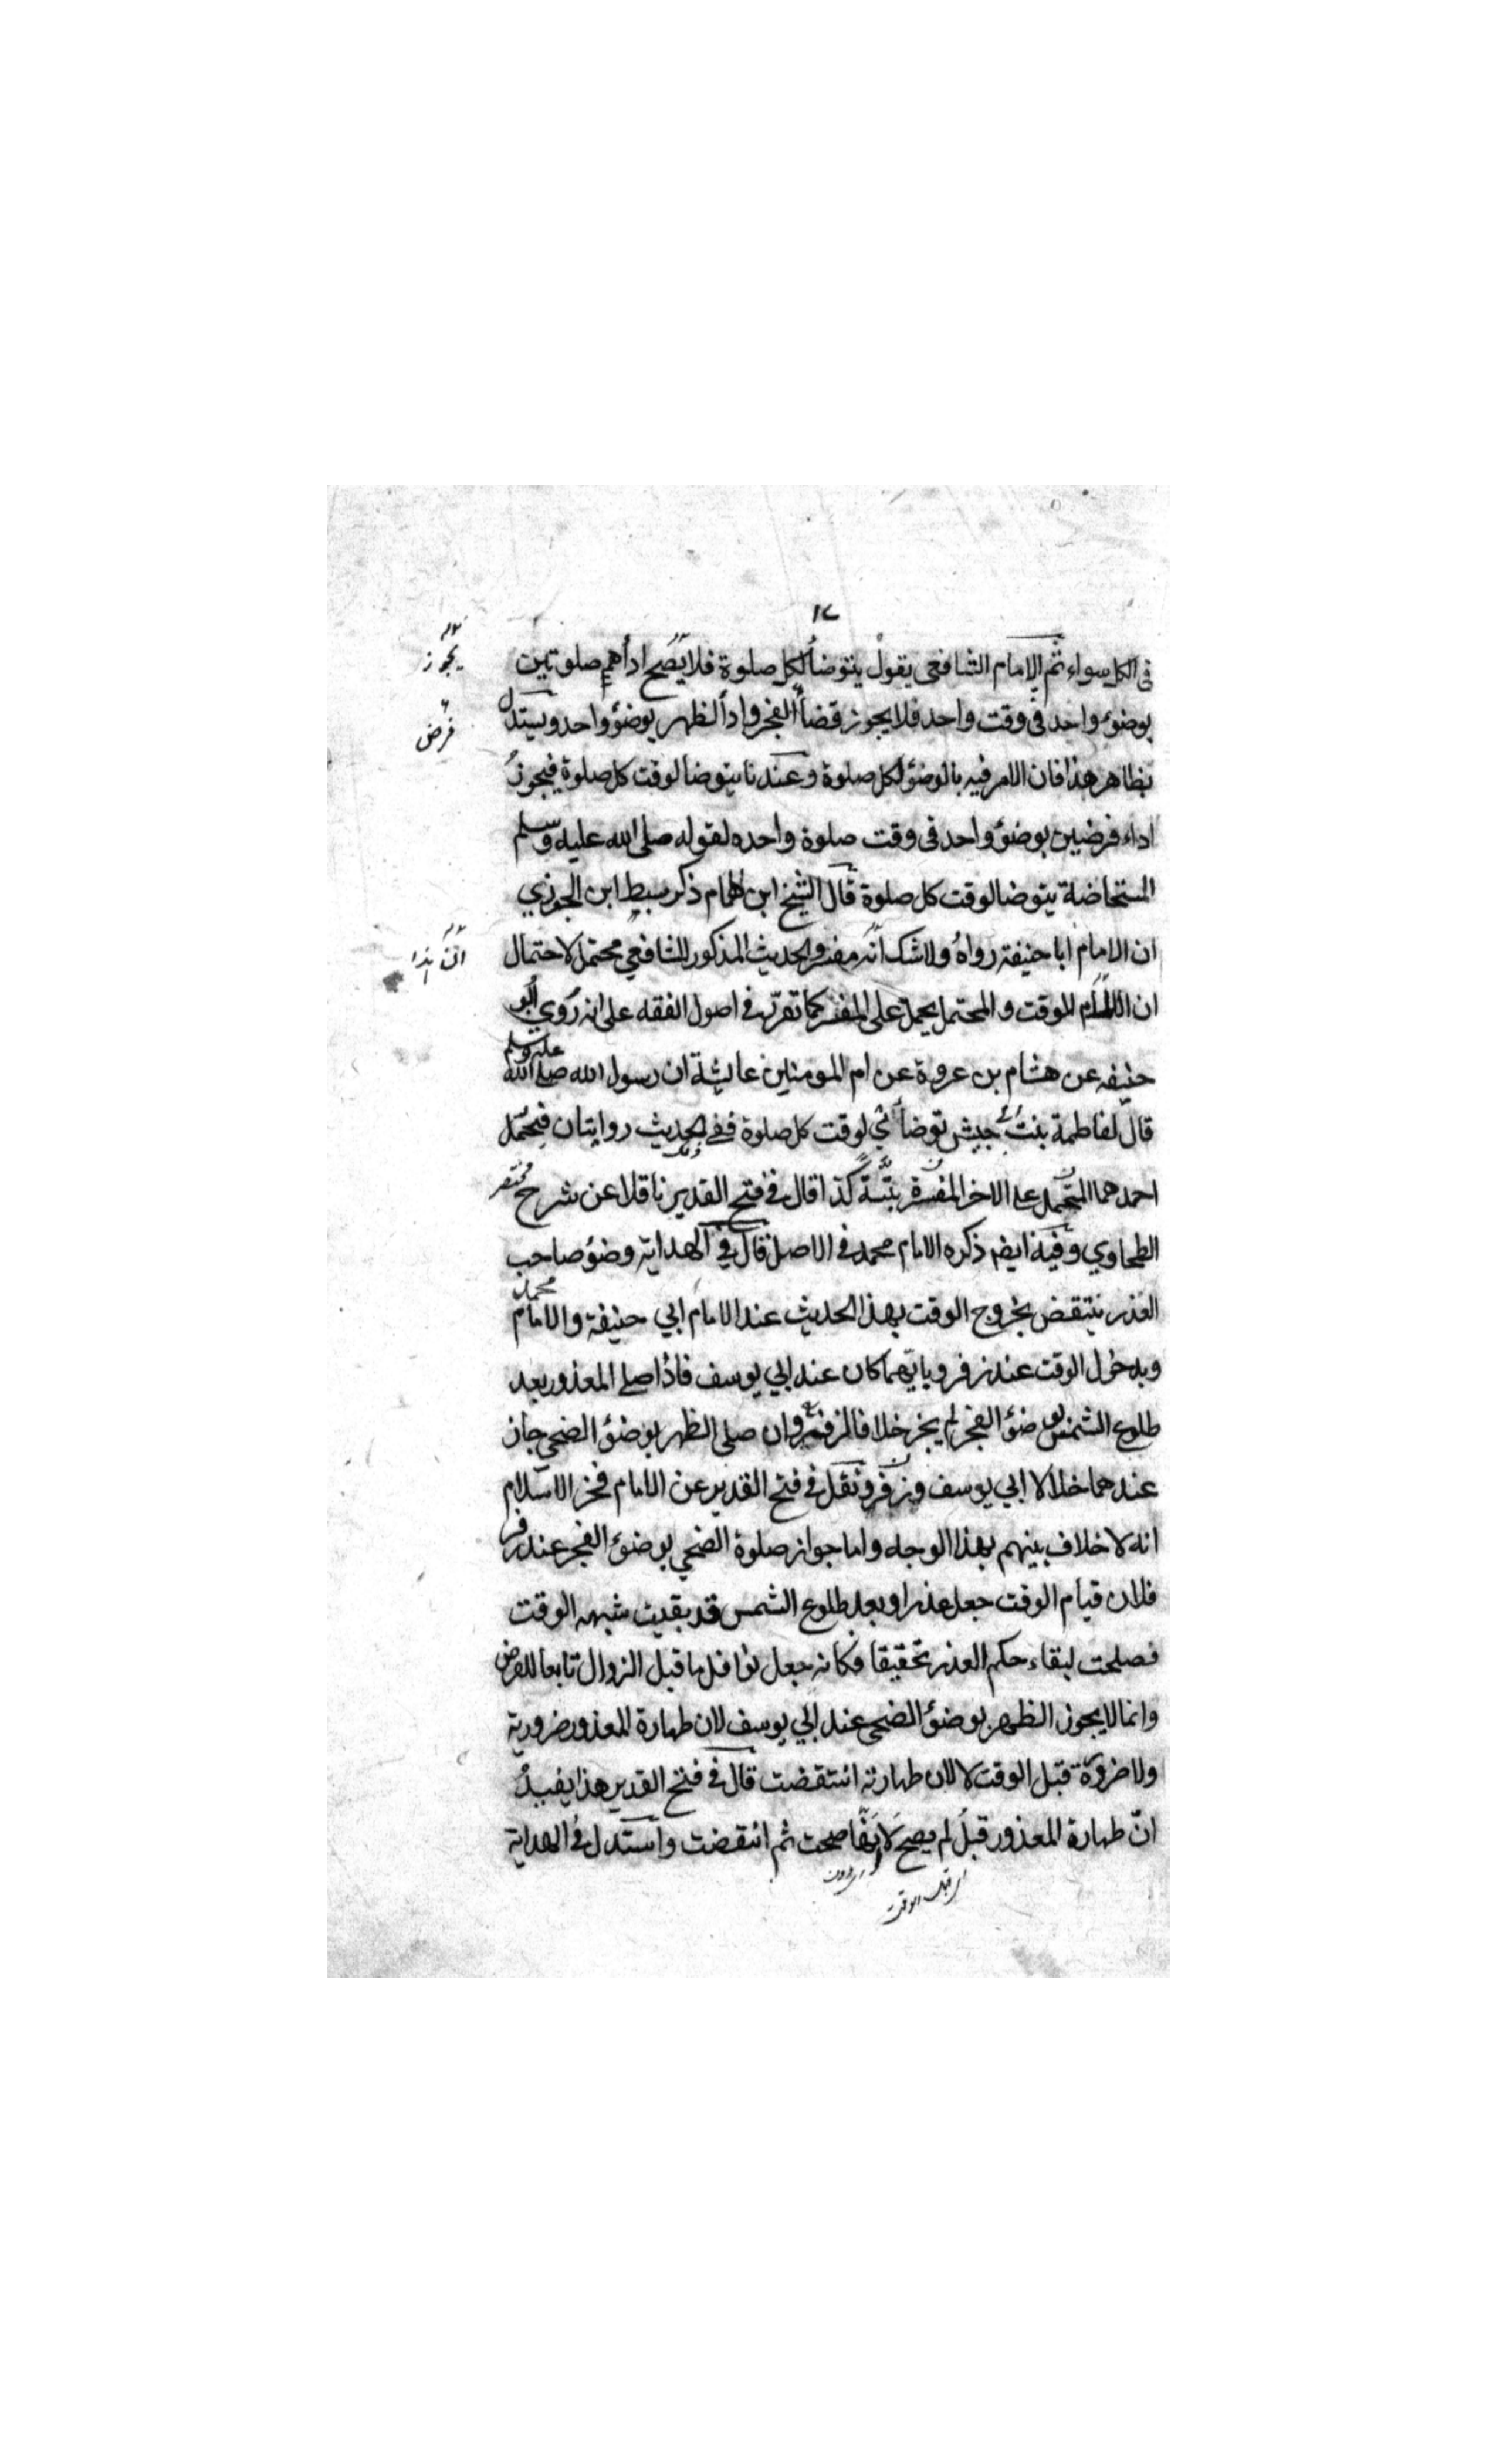 ١٧
في الكل سواء ثم الامام الشافعي يقول يتوضأ لكل صلوة فلا يصح اداهم صلوتين
بوضوء واحد في وقت واحد فلا يجوز قضأ الفجر واداً الظهر بوضوء واحد ويستدل
بظاهر هذا فان الامر فيه بالوضوء لكل صلوة وعندنا يتوضا لوقت كل صلوة فيجوز
اداء فرضين بوضوء واحد في وقت صلوة واحده لقوله صلى الله عليه وسلم
المستحاضة يتوضا لوقت كل صلوة قال الشيخ ابن الهمام ذكر سبط ابن الجوزي
ان الامام ابا حنيفة رواه ولا شك انه مفسر والحديث المذكور للشافعي محتمل لاحتمال
ان اللام للوقت والمحتمل يحمل على المفسر كما تقرر في اصول الفقه على انه روي ابو
حنيفه عن هشام بن عروة عن ام المومنين عايشة ان رسول الله صلى الله عليه وسلم
قال لفاطمة بنت حبيش توضائي لوقت كل صلوة ففي الحديث روايتان فيحمل
احدهما المحتمل على الاخر المفسرة بتة كذا قال في فتح القدير ناقلا عن شرح مختصر
الطحاوي وفيه ايضا ذكره الامام محمد في الاصل قال في الهداية وضوء صاحب
العذر ينتقض بخروج الوقت بهذا الحديث عند الامام ابي حنيفة والامام محمد
وبدخول الوقت عند زفر وبايهما كان عند ابي يوسف فاذا صلى المعذور بعد
طلوع الشمس بوضوء الفجر لم يجز خلافا لزفر وان صلى الظهر بوضوء الضحى جاز
عندهما خلافا لابي يوسف وزفر ونقل في فتح القدير عن الامام فخر الاسلام
انه لا خلاف بينهم بهذا الوجه واما جواز صلوة الضحى بوضوء الفجر عند زفر
فلان قيام الوقت جعل عذرا وبعد طلوع الشمس قد بقيت شبهه الوقت
فصلحت لبقاء حكم العذر تحقيقا فكانه جعل نوافل ما قبل الزوال تابعا للفرض
وانما لا يجوز الظهر بوضوء الضحى عند ابي يوسف لان طهارة المعذور ضرورية
ولا ضرورة قبل الوقت لا لان طهارته انتقضت قال في فتح القدير هذا يفيد
ان طهارة المعذور قبل لم يصح لا انها صحت ثم انتقضت واستدل في الهداية
اي قبل الوقت
يجوز
فرض